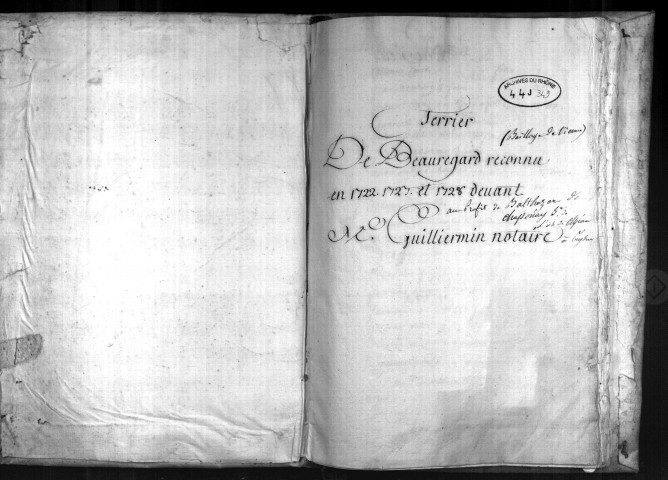 ARCHIVES DU RHÔNE
44J 349
Terrier
(Bailliage de Vienne)
De Beauregard reconnu
en 1722. 1727. et 1728 devant
au Profit de Balthazar de
Me. Guilliermin notaire